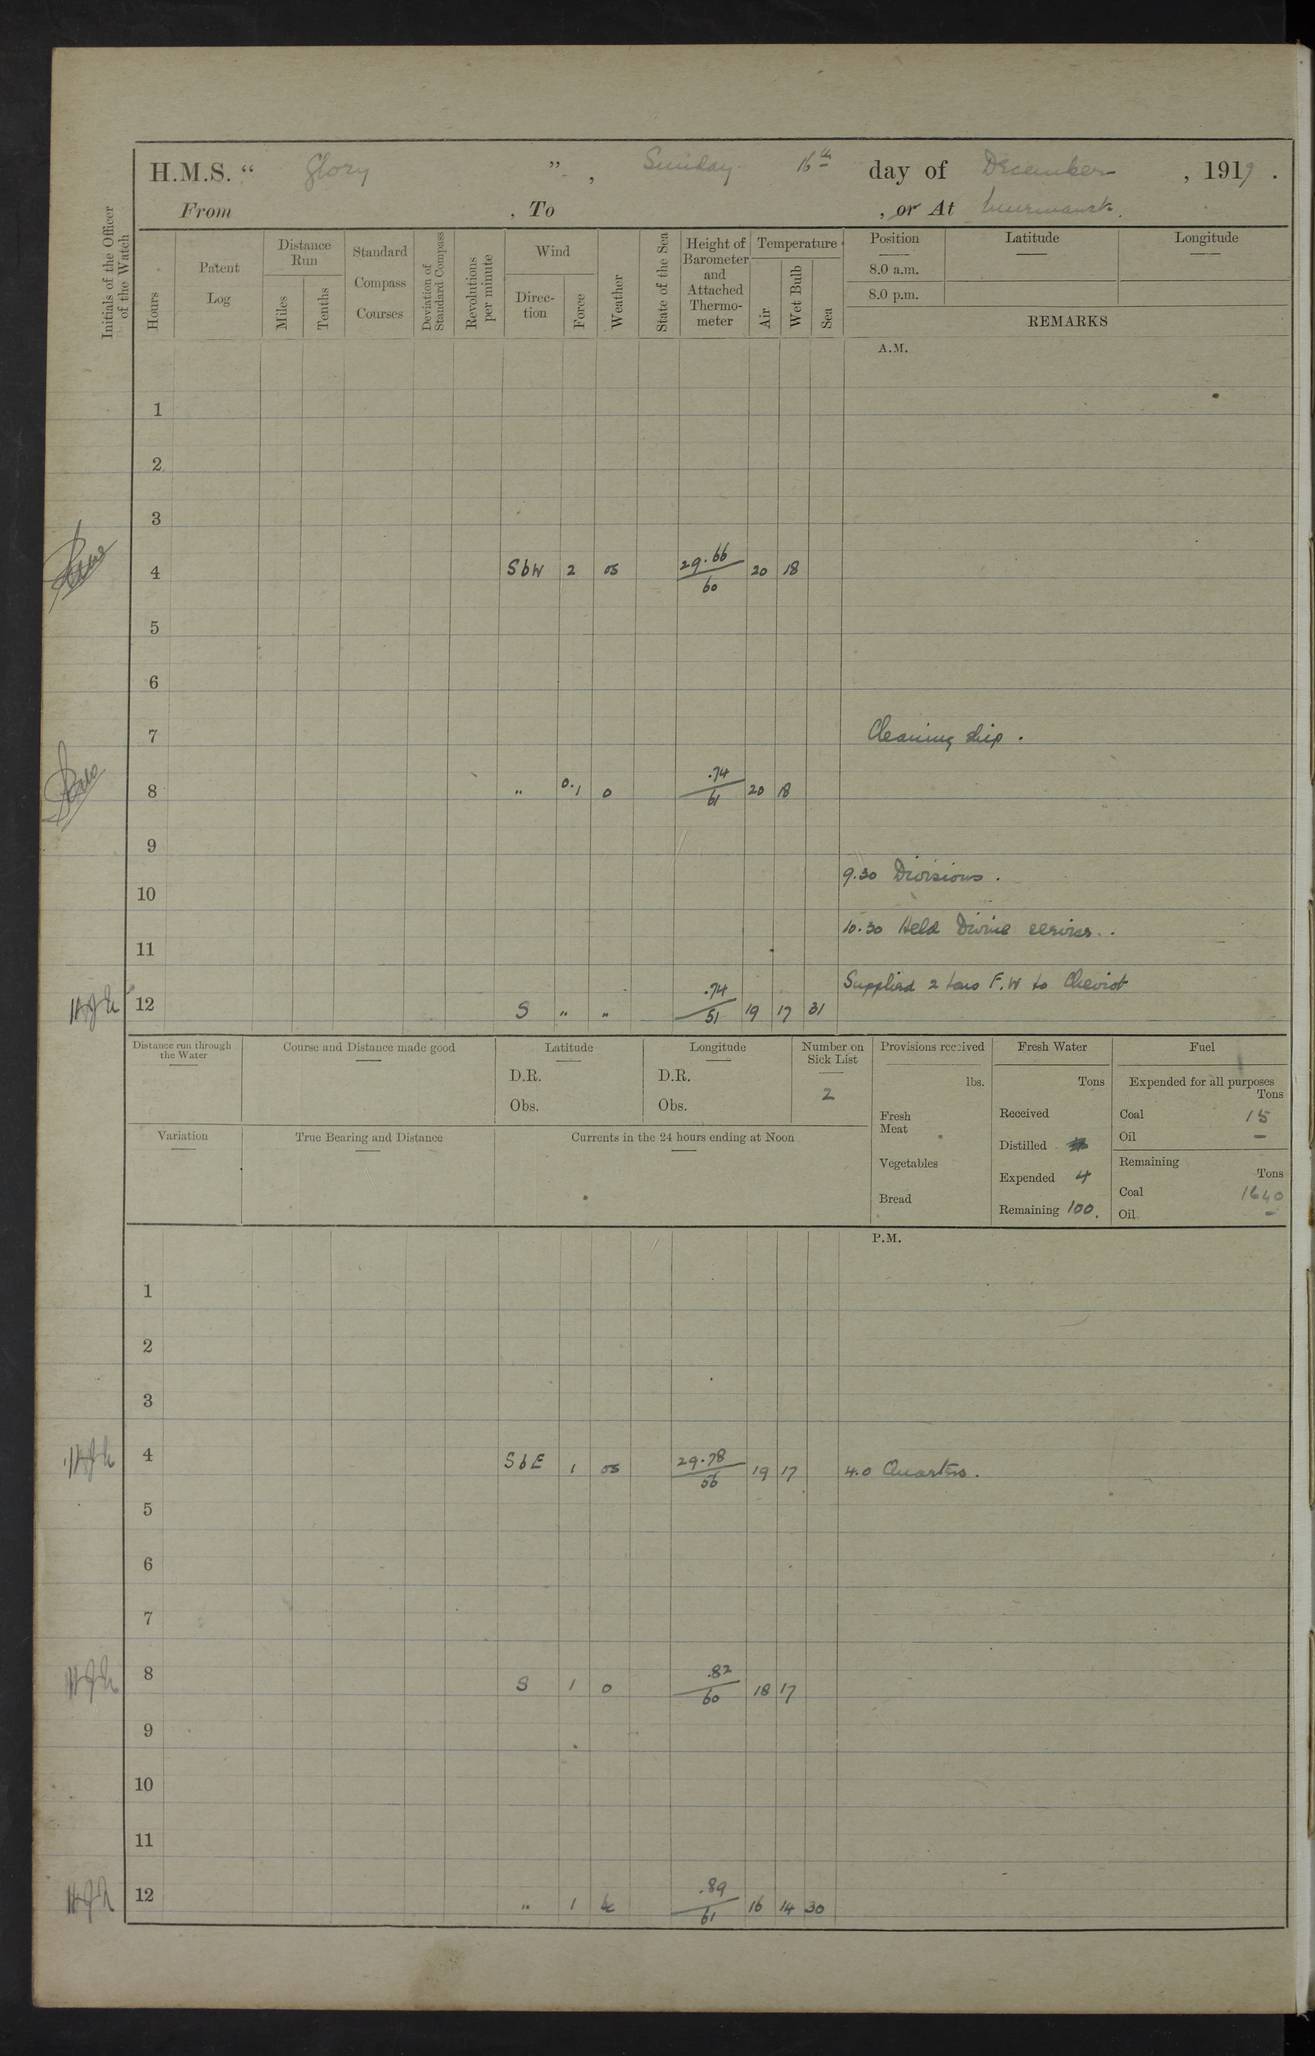 H.M.S. “ Glory ” , Sunday 16th day of December , 1917 .
From , To , or At Murmansk.
Initials of the Officer of the Watch
Hours
Patent Log
Distance Run
Miles
Tenths
Standard Compass Courses
Deviation of Standard Compass
Revolutions per minute
Wind
Direc-tion
Force
Weather
State of the Sea
Height of Barometer and Attached Thermo-meter
Temperature
Air
Wet Bulb
Sea
Position
Latitude
Longitude
8.0 a.m.
8.0 p.m.
REMARKS
A.M.
1
2
3
4 SbW 2 os 29.66/60 20 18
5
6
7 Cleaning ship.
8 " 0.1 o .74/61 20 18
9
9.30 Divisions.
10
10.30 Held Divine service.
11
Supplied 2 tons F.W to Cheviot
12 S " " .74/51 19 17 31
Distance run through the Water
Course and Distance made good
Latitude
D.R.
Obs.
Longitude
D.R.
Obs.
Number on Sick List
2
Provisions received
lbs.
Fresh Meat
Vegetables
Bread
Fresh Water
Tons
Received
Distilled
Expended 4
Remaining 100.
Fuel
Expended for all purposes
Tons
Coal 15
Oil –
Remaining
Tons
Coal 1640
Oil –
Variation
True Bearing and Distance
Currents in the 24 hours ending at Noon
P.M.
1
2
3
4 SbE 1 os 29.78/56 19 17 4.0 Quarters.
5
6
7
8 S 1 o .82/60 18 17
9
10
11
12 " 1 bc .89/61 16 14 30